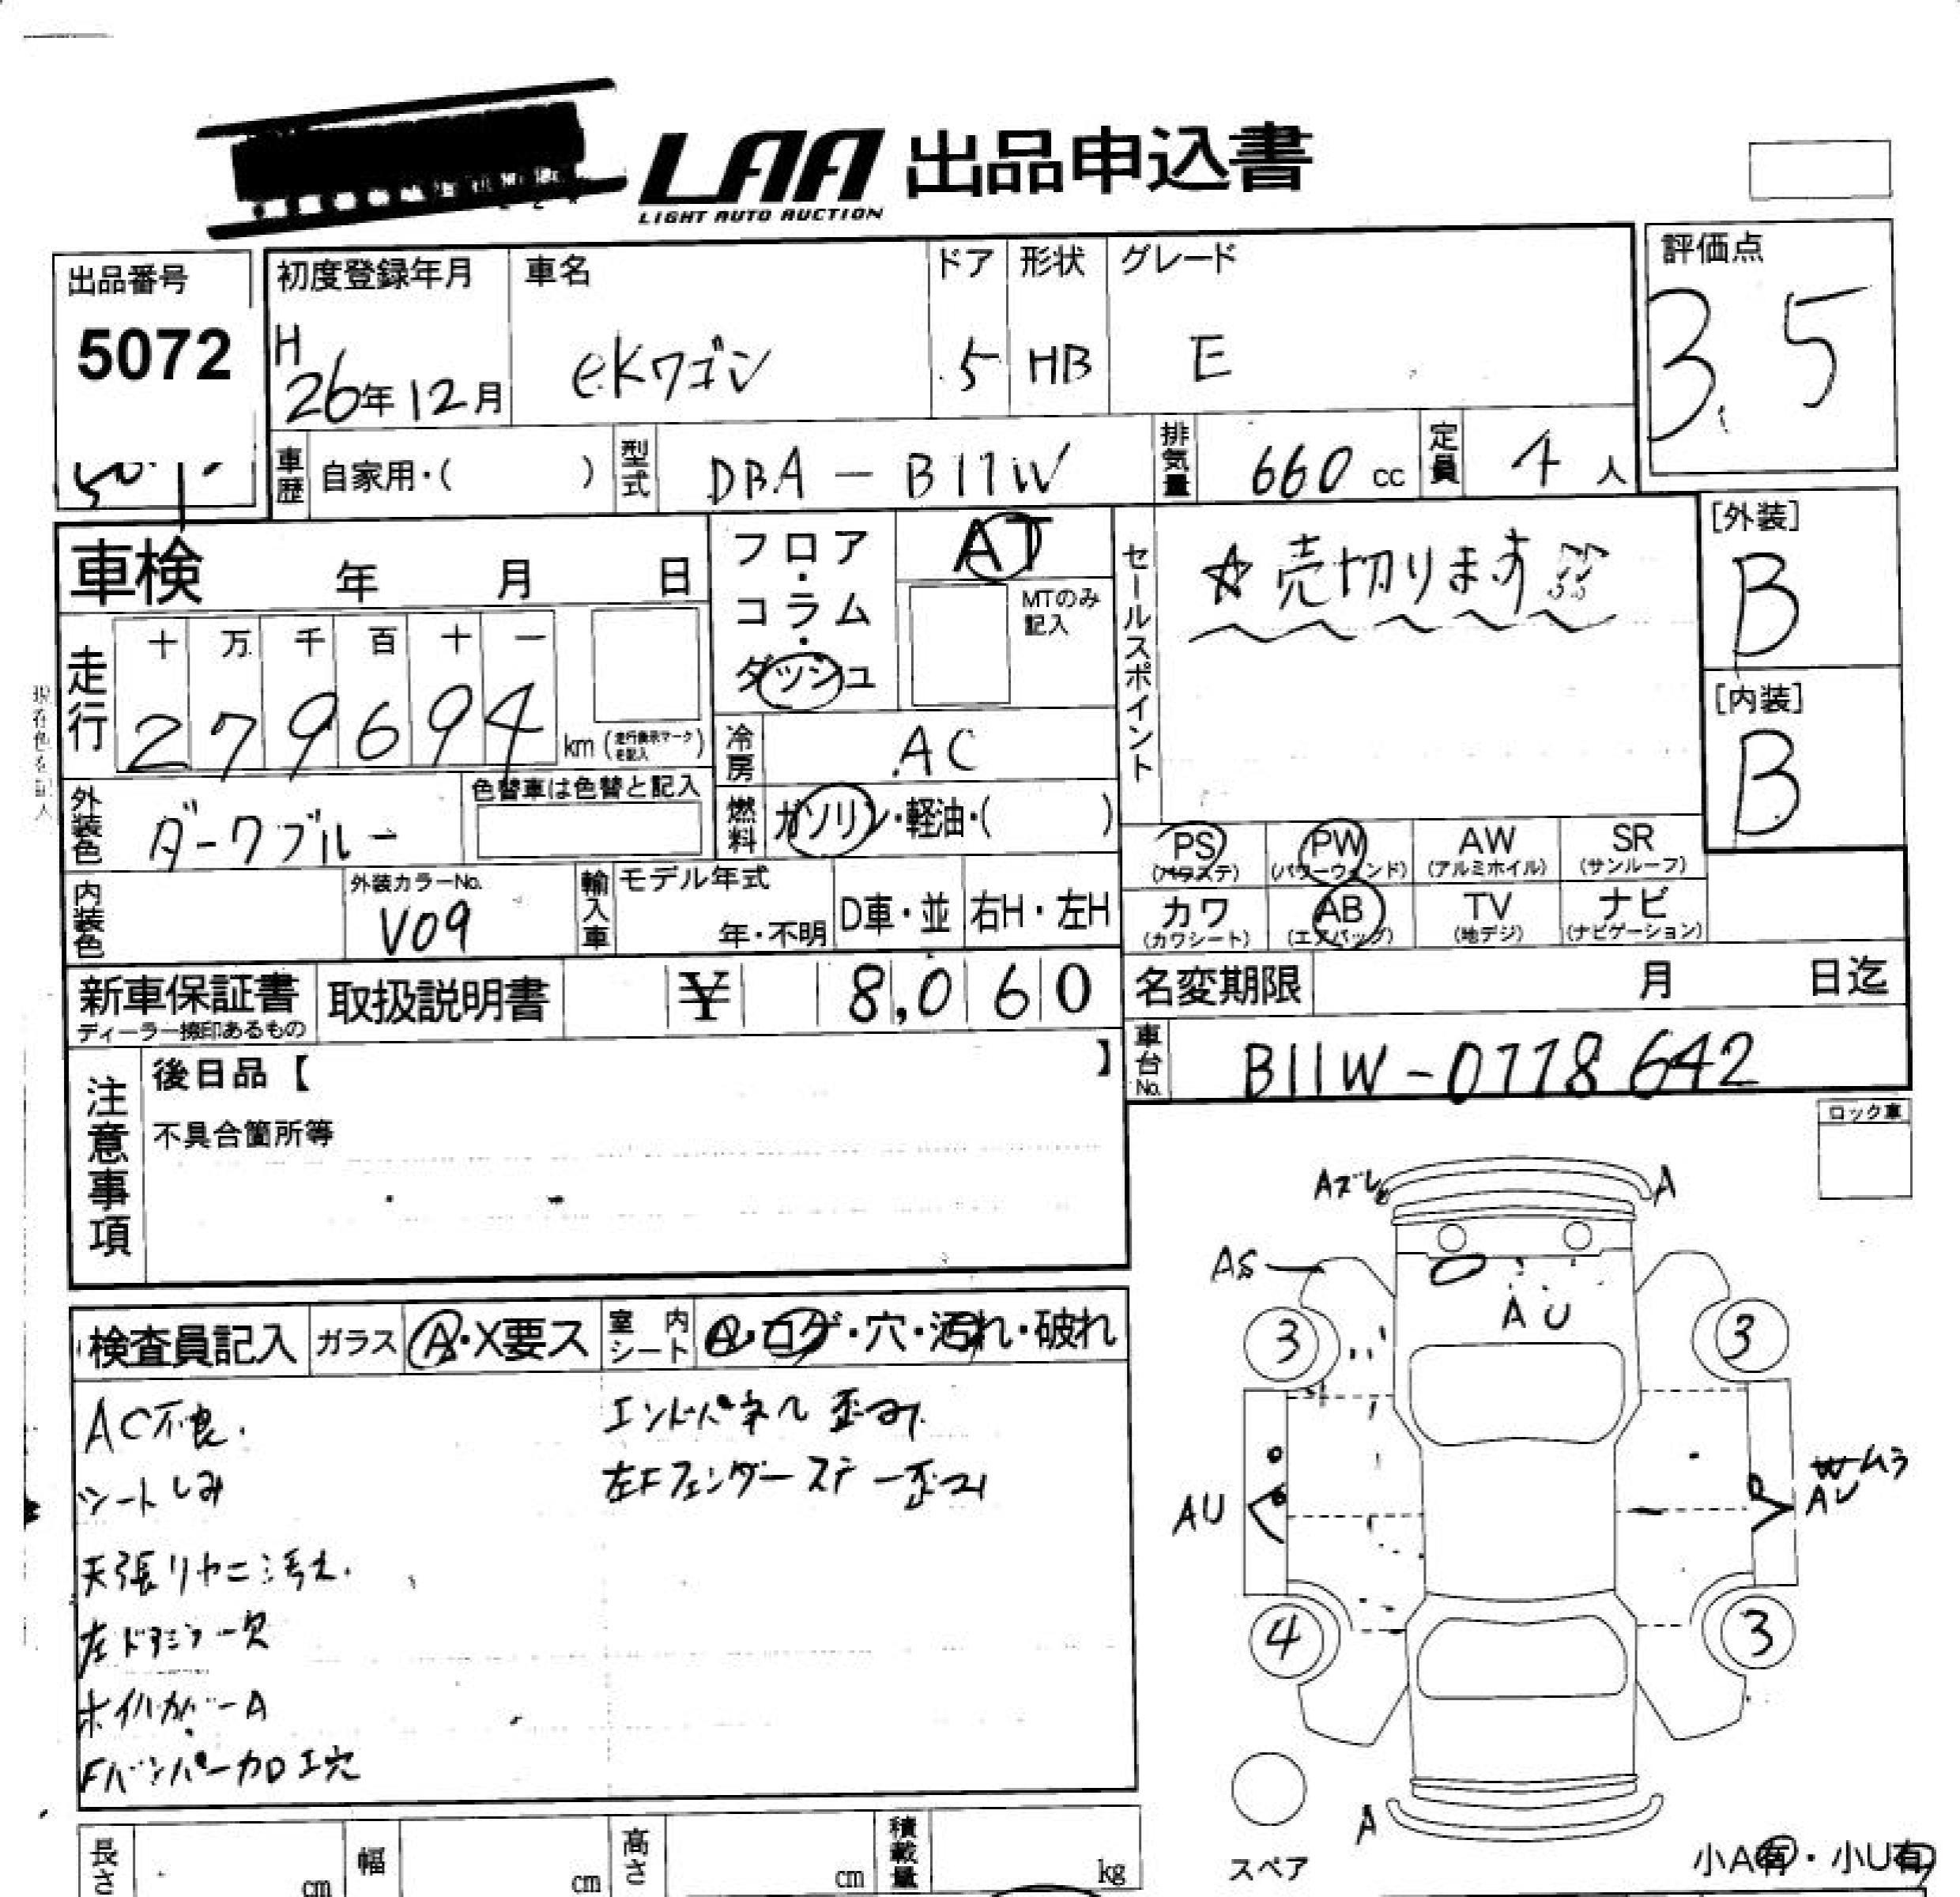 LAA 出品申込書
LIGHT AUTO AUCTION
出品番号
5072
初度登録年月
H
26年12月
車名
eKワゴン
ドア
5
形状
HB
グレード
E
評価点
3.5
車歴
自家用・( )
型式
DBA-B11W
排気量
660 cc
定員
4人
車検 年 月 日
フロア・コラム・ダッシュ
AT
MTのみ記入
セールスポイント
☆売切ります!!
[外装]
B
[内装]
B
走行
十 万 千 百 十 一
2 7 9 6 9 4 km (走行表示マークを記入)
冷房
AC
外装色
ダークブルー
色替車は色替と記入
燃料
ガソリン・軽油・( )
内装色
外装カラーNo.
V09
輸入車
モデル年式
年・不明
D車・並
右H・左H
PS
(パワステ)
PW
(パワーウィンド)
AW
(アルミホイル)
SR
(サンルーフ)
カワ
(カワシート)
AB
(エアバッグ)
TV
(地デジ)
ナビ
(ナビゲーション)
新車保証書
ディーラー捺印あるもの
取扱説明書
¥ 8,060
名変期限 月 日迄
車台No.
B11W-0778642
注意事項
後日品【 】
不具合箇所等
ロック車
検査員記入
ガラス
A・X要ス
室内シート
A・コゲ・穴・汚れ・破れ
AC不良.
シートしみ
天張りヤニ汚れ.
左ドアミラー欠
ホイルカバーA
Fバンパー加工穴
エンドパネル歪み
左Fフェンダーステー歪み
Aズレ
A
AS
AU
3
3
AU
Wムラ
AU
4
3
A
スペア
小A有・小U有
長さ cm
幅 cm
高さ cm
積載量 kg